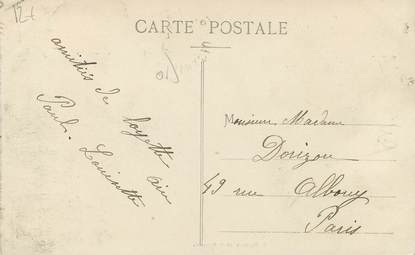 12t
CARTE POSTALE
amitiés de
Paul. Louisette
Monsieur Madame
Dorizon
49 rue Albouy
Paris